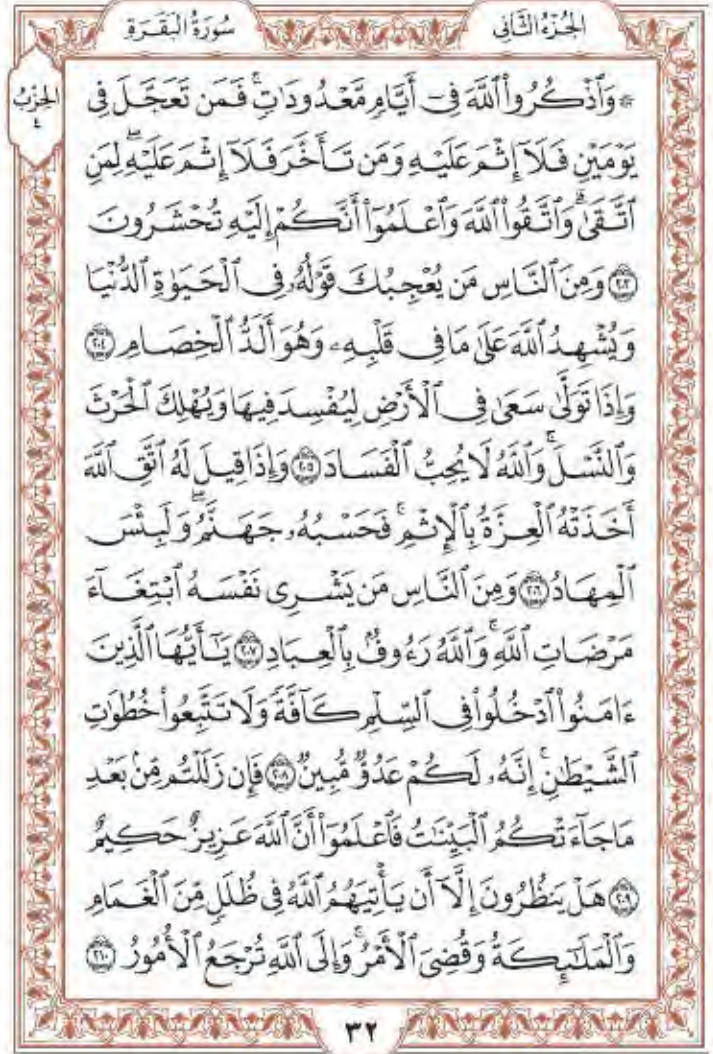 سُورَةُ البَقَرَةِ
الجُزْءُ الثَّانِى
الحِزْبُ
٤
۞ وَٱذْكُرُوا۟ ٱللَّهَ فِىٓ أَيَّامٍ مَّعْدُودَٰتٍ ۚ فَمَن تَعَجَّلَ فِى
يَوْمَيْنِ فَلَآ إِثْمَ عَلَيْهِ وَمَن تَأَخَّرَ فَلَآ إِثْمَ عَلَيْهِ ۖ لِمَنِ
ٱتَّقَىٰ ۗ وَٱتَّقُوا۟ ٱللَّهَ وَٱعْلَمُوٓا۟ أَنَّكُمْ إِلَيْهِ تُحْشَرُونَ
٢٠٣ وَمِنَ ٱلنَّاسِ مَن يُعْجِبُكَ قَوْلُهُۥ فِى ٱلْحَيَوٰةِ ٱلدُّنْيَا
وَيُشْهِدُ ٱللَّهَ عَلَىٰ مَا فِى قَلْبِهِۦ وَهُوَ أَلَدُّ ٱلْخِصَامِ ٢٠٤
وَإِذَا تَوَلَّىٰ سَعَىٰ فِى ٱلْأَرْضِ لِيُفْسِدَ فِيهَا وَيُهْلِكَ ٱلْحَرْثَ
وَٱلنَّسْلَ ۗ وَٱللَّهُ لَا يُحِبُّ ٱلْفَسَادَ ٢٠٥ وَإِذَا قِيلَ لَهُ ٱتَّقِ ٱللَّهَ
أَخَذَتْهُ ٱلْعِزَّةُ بِٱلْإِثْمِ ۚ فَحَسْبُهُۥ جَهَنَّمُ ۖ وَلَبِئْسَ
ٱلْمِهَادُ ٢٠٦ وَمِنَ ٱلنَّاسِ مَن يَشْرِى نَفْسَهُ ٱبْتِغَآءَ
مَرْضَاتِ ٱللَّهِ ۗ وَٱللَّهُ رَءُوفٌۢ بِٱلْعِبَادِ ٢٠٧ يَٰٓأَيُّهَا ٱلَّذِينَ
ءَامَنُوا۟ ٱدْخُلُوا۟ فِى ٱلسِّلْمِ كَآفَّةً وَلَا تَتَّبِعُوا۟ خُطُوَٰتِ
ٱلشَّيْطَٰنِ ۚ إِنَّهُۥ لَكُمْ عَدُوٌّ مُّبِينٌ ٢٠٨ فَإِن زَلَلْتُم مِّنۢ بَعْدِ
مَا جَآءَتْكُمُ ٱلْبَيِّنَٰتُ فَٱعْلَمُوٓا۟ أَنَّ ٱللَّهَ عَزِيزٌ حَكِيمٌ
٢٠٩ هَلْ يَنظُرُونَ إِلَّآ أَن يَأْتِيَهُمُ ٱللَّهُ فِى ظُلَلٍ مِّنَ ٱلْغَمَامِ
وَٱلْمَلَٰٓئِكَةُ وَقُضِىَ ٱلْأَمْرُ ۚ وَإِلَى ٱللَّهِ تُرْجَعُ ٱلْأُمُورُ ٢١٠
٣٢